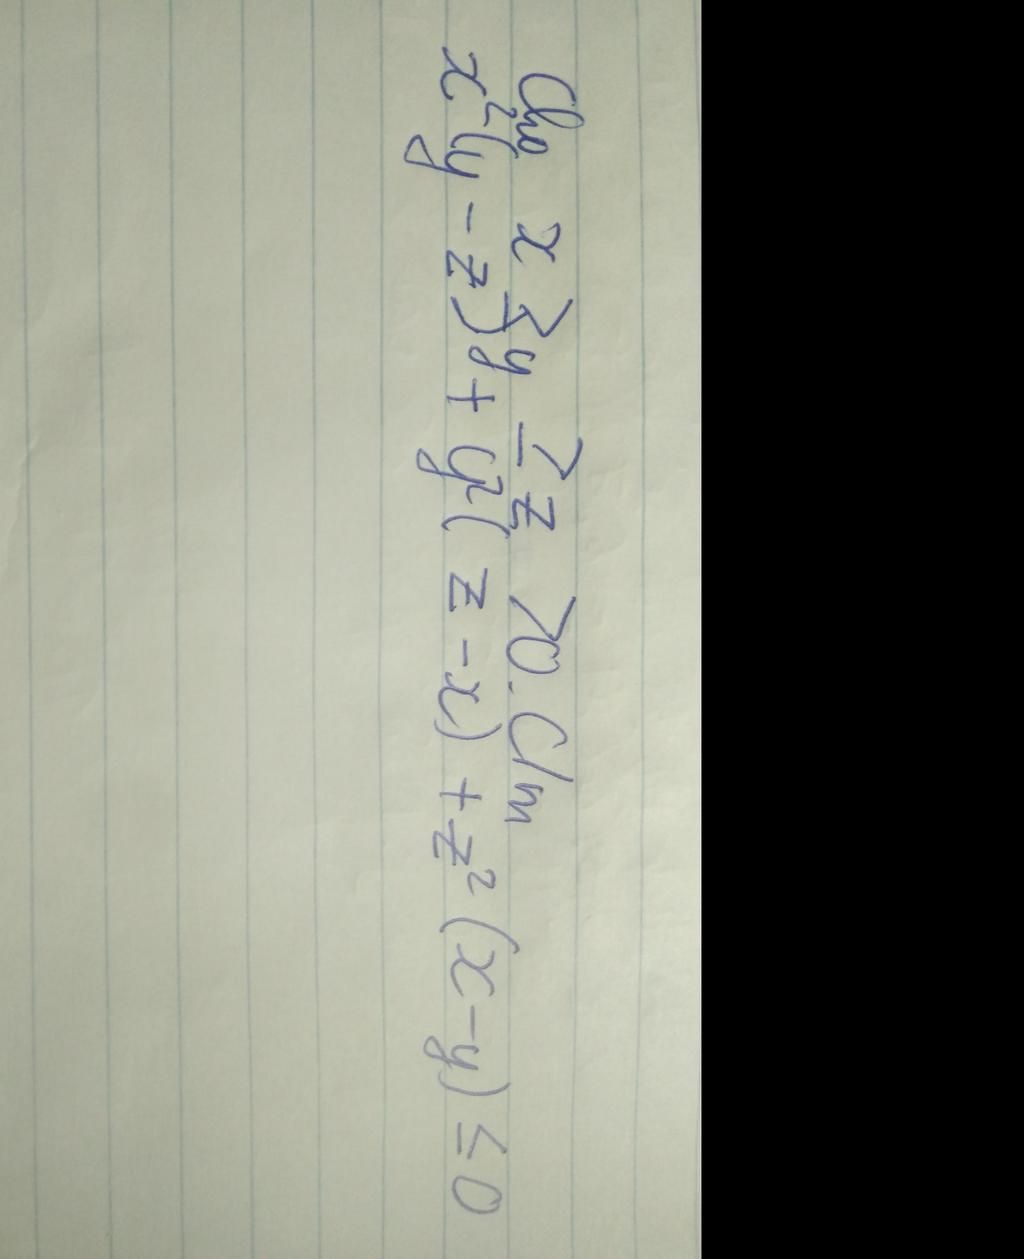 Cho x ≥ y ≥ z > 0. C/m
x²(y - z) + y²(z - x) + z²(x - y) ≤ 0